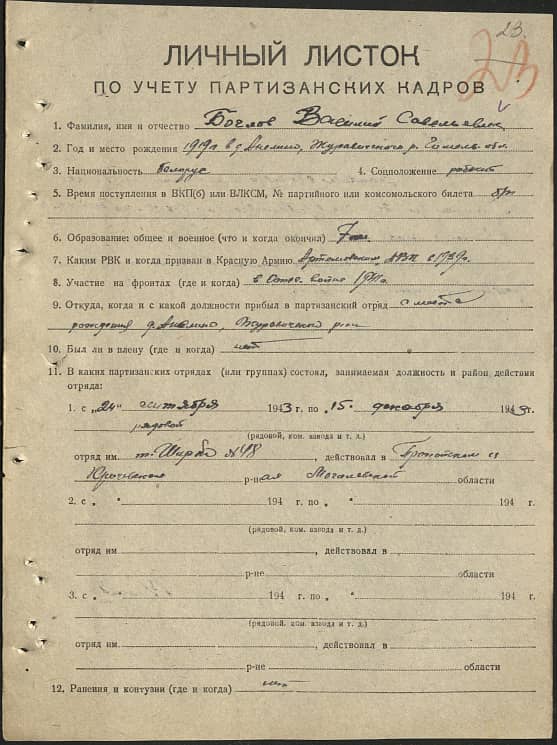 23.
23
ЛИЧНЫЙ ЛИСТОК
ПО УЧЕТУ ПАРТИЗАНСКИХ КАДРОВ
1. Фамилия, имя и отчество Василий Савельевич
2. Год и место рождения 1919 г. в д. Журавичского р. Гомель. обл.
3. Национальность белорус 4. Соцположение рабочий
5. Время поступления в ВКП(б) или ВЛКСМ, № партийного или комсомольского билета б/п
6. Образование: общее и военное (что и когда окончил) 7 кл.
7. Каким РВК и когда призван в Красную Армию Артемовским РВК в 1939 г.
8. Участие на фронтах (где и когда) в Отеч. войне 1941 г.
9. Откуда, когда и с какой должности прибыл в партизанский отряд с места
рождения д.
10. Был ли в плену (где и когда) нет
11. В каких партизанских отрядах (или группах) состоял, занимаемая должность и район действия
отряда:
1. с „24“ сентября 1943 г. по „15“ декабря 1943 г.
рядовой
(рядовой, ком. взвода и т. д.)
отряд им № 48, действовал в Пропойском и
р-нах Могилевской области
2. с „ “ 194 г. по „ “ 194 г.
(рядовой, ком. взвода и т. д.)
отряд им. , действовал в
р-не области
3. с „ “ 194 г. по „ “ 194 г.
(рядовой, ком. взвода и т. д.)
отряд им. , действовал в
р-не области
12. Ранения и контузии (где и когда) нет